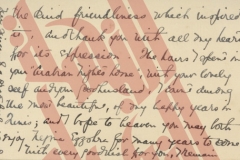 the kind friendliness which inspired
it and thank you with all my heart
for its expression. The hours I spent in
your Arabian nights home, with your lovely
self and your husband, I class among
the most beautiful, of my happy years in
and I hope to heaven you may both
enjoy for many years to come
With every good wish for you,